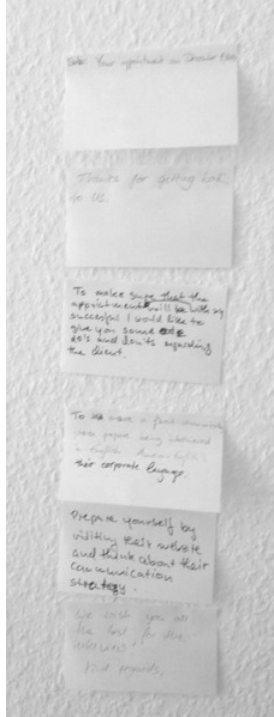 Sub: Your appointment on December
Thanks for getting back
to us.
To make sure that the
appointment will be with my
succesful I would like to
give you some
do's and don'ts regarding
the client.
To make a good
please prepare being interviewed
in English. American English is
their corporate language.
Prepare yourself by
visiting their website
and think about their
communication
strategy.
We wish you all
the best for the
interview!
Kind regards,